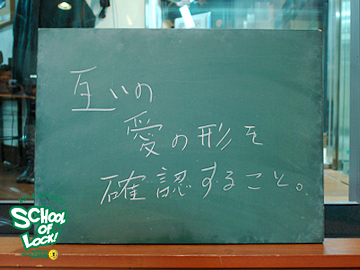 互いの
愛の形を
確認すること。
SCHOOL
OF
LOCK!